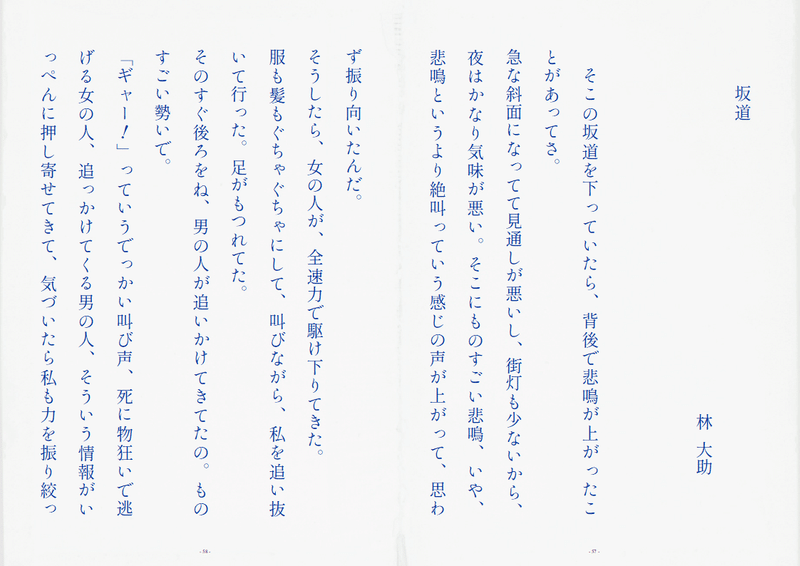 坂道
林 大助
そこの坂道を下っていたら、背後で悲鳴が上がったこ
とがあってさ。
急な斜面になってて見通しが悪いし、街灯も少ないから、
夜はかなり気味が悪い。そこにものすごい悲鳴、いや、
悲鳴というより絶叫っていう感じの声が上がって、思わ
ず振り向いたんだ。
そうしたら、女の人が、全速力で駆け下りてきた。
服も髪もぐちゃぐちゃにして、叫びながら、私を追い抜
いて行った。足がもつれてた。
そのすぐ後ろをね、男の人が追いかけてきてたの。もの
すごい勢いで。
「ギャー！」っていうでっかい叫び声、死に物狂いで逃
げる女の人、追っかけてくる男の人、そういう情報がい
っぺんに押し寄せてきて、気づいたら私も力を振り絞っ